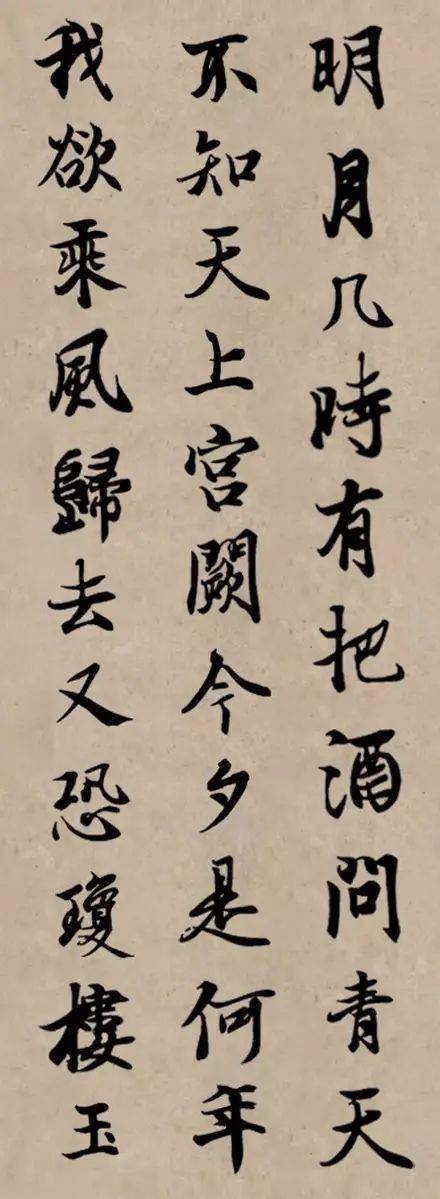 明月几時有把酒問青天
不知天上宮闕今夕是何年
我欲乘風歸去又恐瓊樓玉